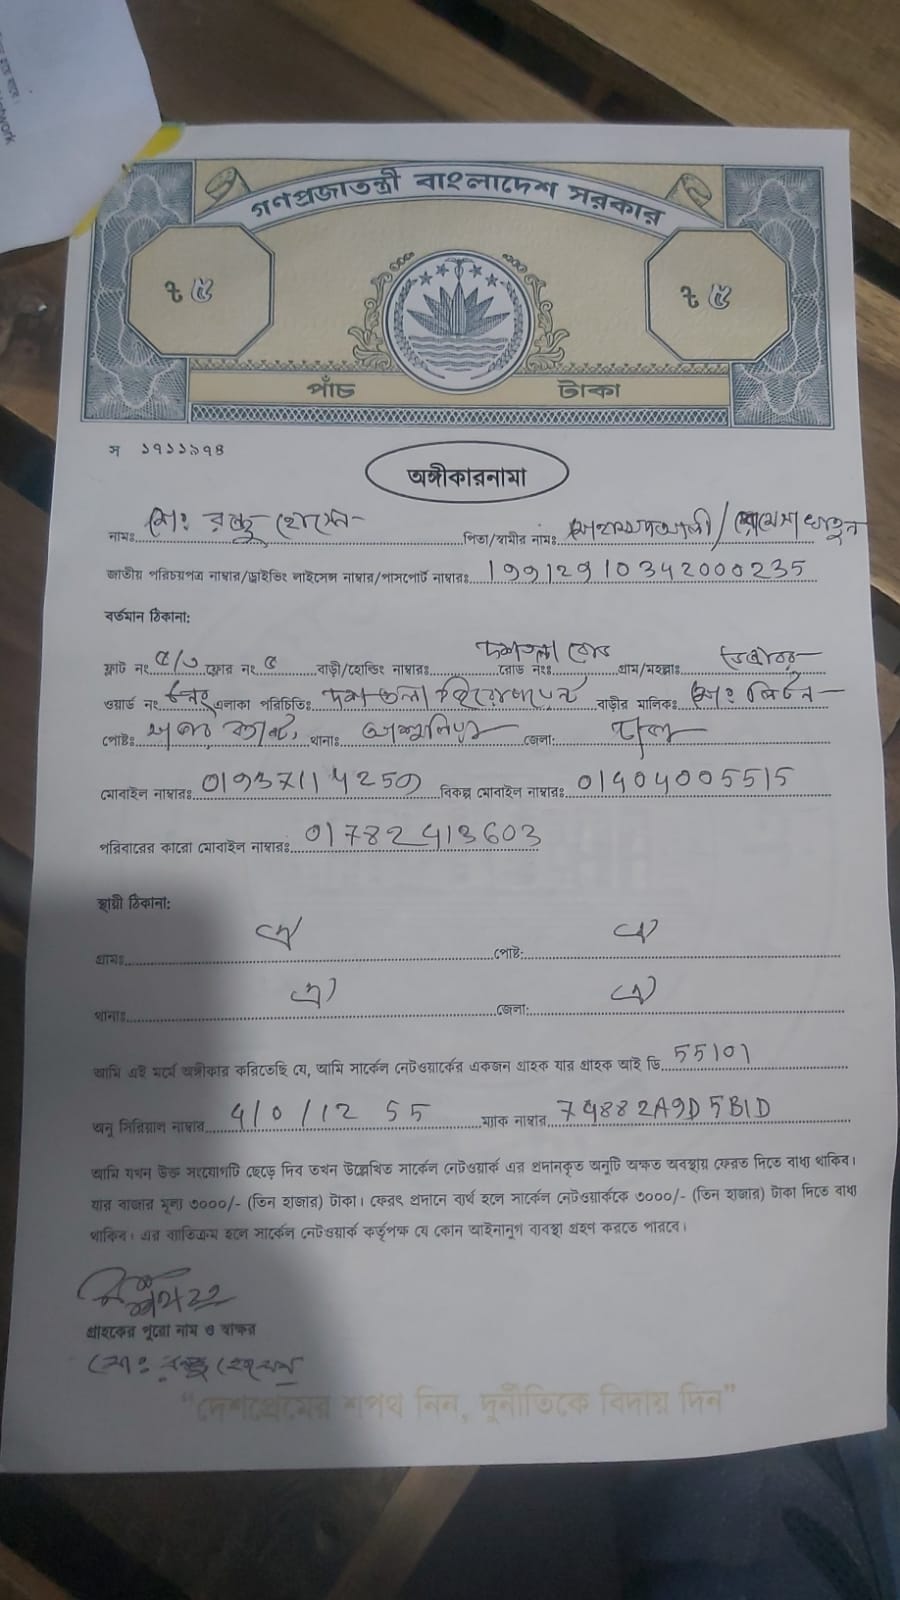 Network
গণপ্রজাতন্ত্রী বাংলাদেশ সরকার
৳ ৫ ৳ ৫
পাঁচ টাকা
স ১৭১১৯৭৪
অঙ্গীকারনামা
নামঃ মোঃ হোসেন পিতা/স্বামীর নামঃ
জাতীয় পরিচয়পত্র নাম্বার/ড্রাইভিং লাইসেন্স নাম্বার/পাসপোর্ট নাম্বারঃ 19912910342000235
বর্তমান ঠিকানা:
ফ্লাট নং ৫/৩ ফ্লোর নং ৫ বাড়ী/হোল্ডিং নাম্বারঃ রোড নংঃ গ্রাম/মহল্লাঃ
ওয়ার্ড নং এলাকা পরিচিতিঃ বাড়ীর মালিকঃ মোঃ লিটন
পোষ্টঃ থানাঃ জেলা: ঢাকা
মোবাইল নাম্বারঃ বিকল্প মোবাইল নাম্বারঃ 01404005515
পরিবারের কারো মোবাইল নাম্বারঃ 01782413603
স্থায়ী ঠিকানা:
গ্রামঃ ঐ পোষ্ট: ঐ
থানাঃ ঐ জেলা: ঐ
আমি এই মর্মে অঙ্গীকার করিতেছি যে, আমি সার্কেল নেটওয়ার্কের একজন গ্রাহক যার গ্রাহক আই ডি 55101
অনু সিরিয়াল নাম্বার ম্যাক নাম্বার
আমি যখন উক্ত সংযোগটি ছেড়ে দিব তখন উল্লেখিত সার্কেল নেটওয়ার্ক এর প্রদানকৃত অনুটি অক্ষত অবস্থায় ফেরত দিতে বাধ্য থাকিব।
যার বাজার মূল্য ৩০০০/- (তিন হাজার) টাকা। ফেরৎ প্রদানে ব্যর্থ হলে সার্কেল নেটওয়ার্ককে ৩০০০/- (তিন হাজার) টাকা দিতে বাধ্য
থাকিব। এর ব্যতিক্রম হলে সার্কেল নেটওয়ার্ক কর্তৃপক্ষ যে কোন আইনানুগ ব্যবস্থা গ্রহণ করতে পারবে।
গ্রাহকের পুরো নাম ও স্বাক্ষর
মোঃ হোসেন
"দেশপ্রেমের শপথ নিন, দুর্নীতিকে বিদায় দিন"